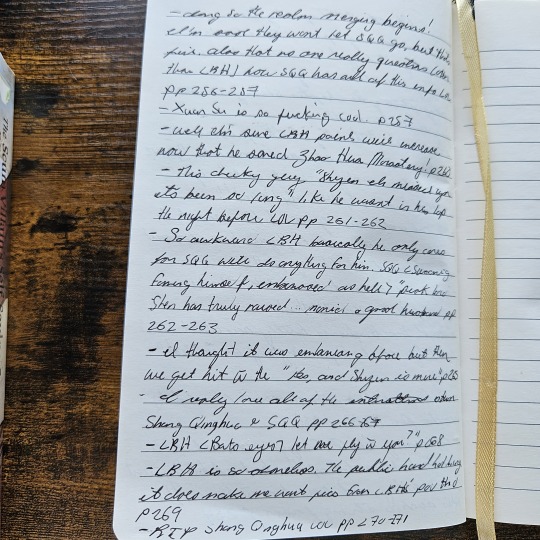 - omg so the realm merging begins!
I'm sad they wont let SQQ go, but thats
fair. also that no one really questions (other
than LBH) how SQQ has all of this info LOL
pp 256-257
- Xuan Su is so fucking cool. p 257
- well I'm sure LBH points were increase
now that he saved Zhao Hua Monastery! p 262
- This cheeky guy "Shizun I missed you
its been so long" like he wasnt in his lap
the night before LOL pp 261-262
- So awkward LBH basically he only cares
for SQQ will do anything for him. SQQ
fanning himself, embarrassed as hell?
Shen has truly raised... a good husband pp
262-263
- I thought it was embarrassing before but then
we get hit w the " and Shizun is mine" p
- I really love all of the between
Shang Qinghua & SQQ pp 266-67
- LBH let me fly w you?" p 268
- LBH is so shameless. The public hand holding
it does make me want from LBHs pov tho
p 269
- RIP Shang Qinghua LOL pp 270-271
The Scum Villain's